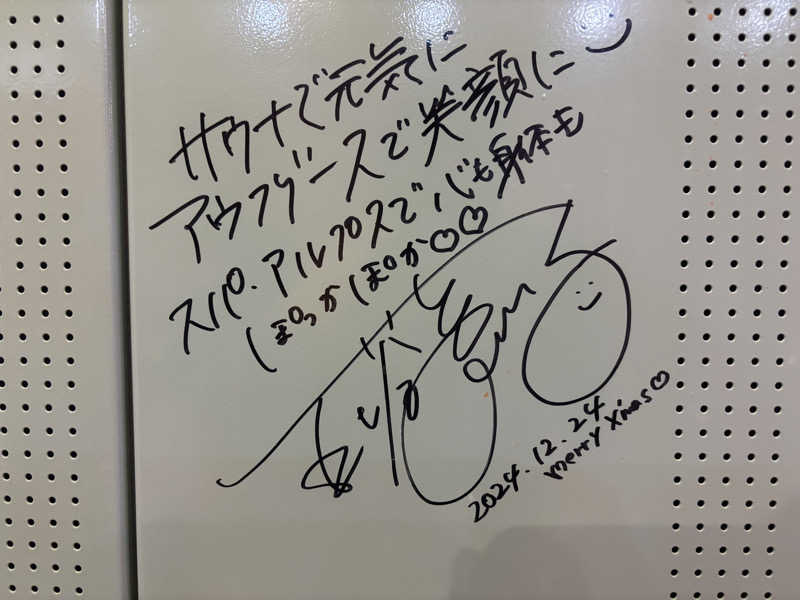 サウナで元気に
アウフグースで笑顔に
スパ・アルプスで心も身体も
ぽっかぽか♡♡
2024.12.24
merry X'mas♡